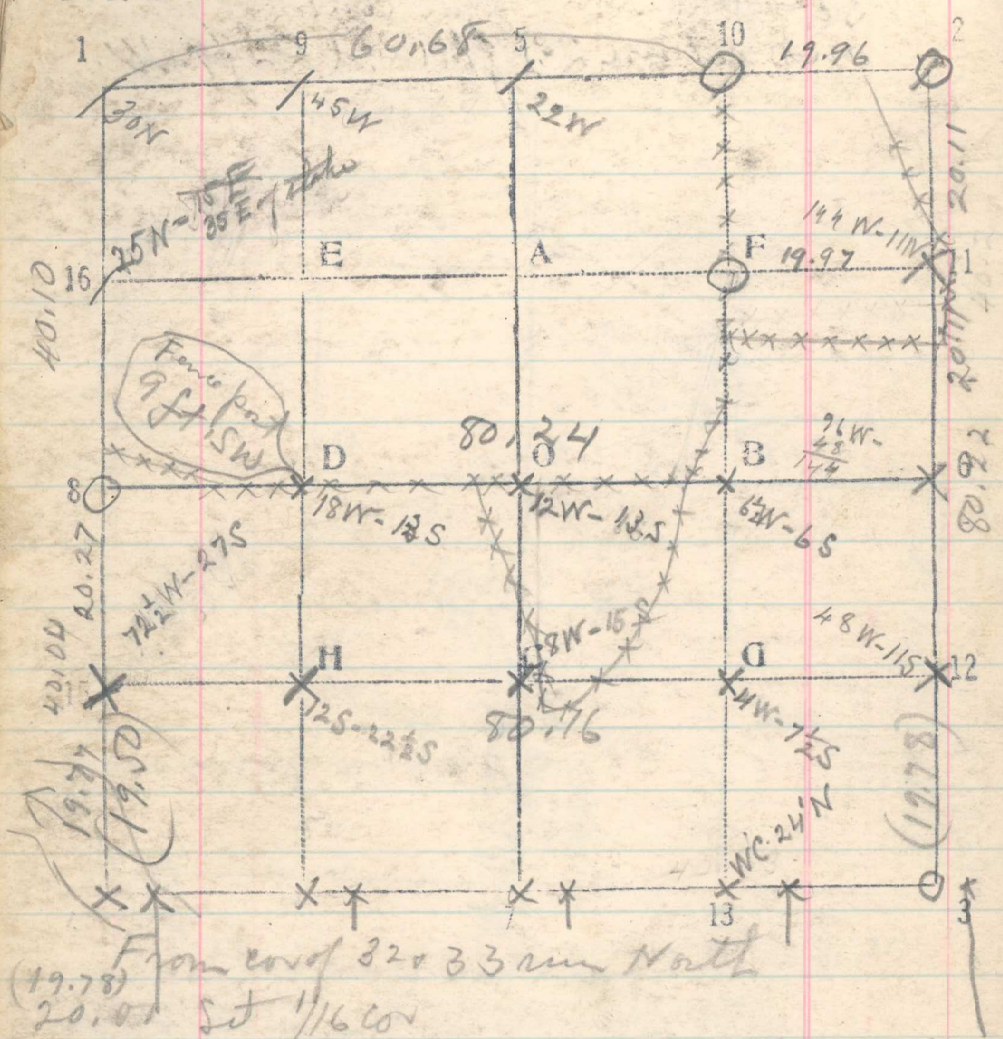 1 9 60.68 5 10 19.96 2
30N 45W 22W
20.11
25N- 15E
35E of stake
144W-11N
16 E A F 19.97 11
40.10
Fence post
9 ft. SW
80.24
96W-
48
144
8 D O B
18W-1½S 12W-1½S 6½W-6S
80.92
20.27
72½W-27S
8W-15
48W-11S
40.04
15 H G 12
72S-22½S 80.76 4W-7½S
19.77 (19.50) (19.78)
WC 24'N
13 3
From cor of 32 & 33 run North
(19.78)
20.01 Set 1/16 cor